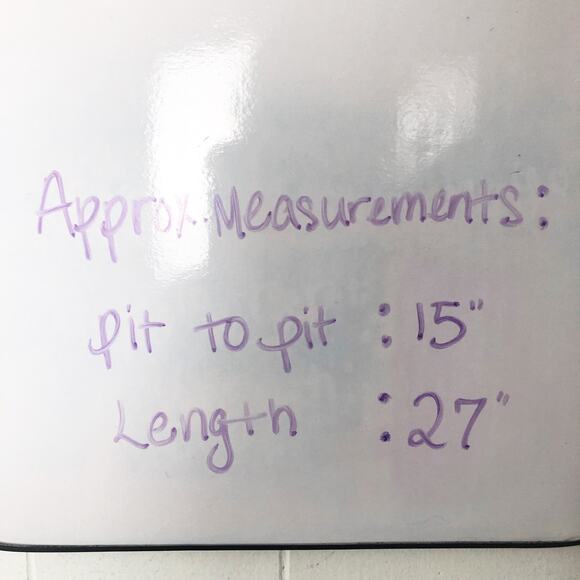 Approx. Measurements:
pit to pit : 15"
Length : 27"